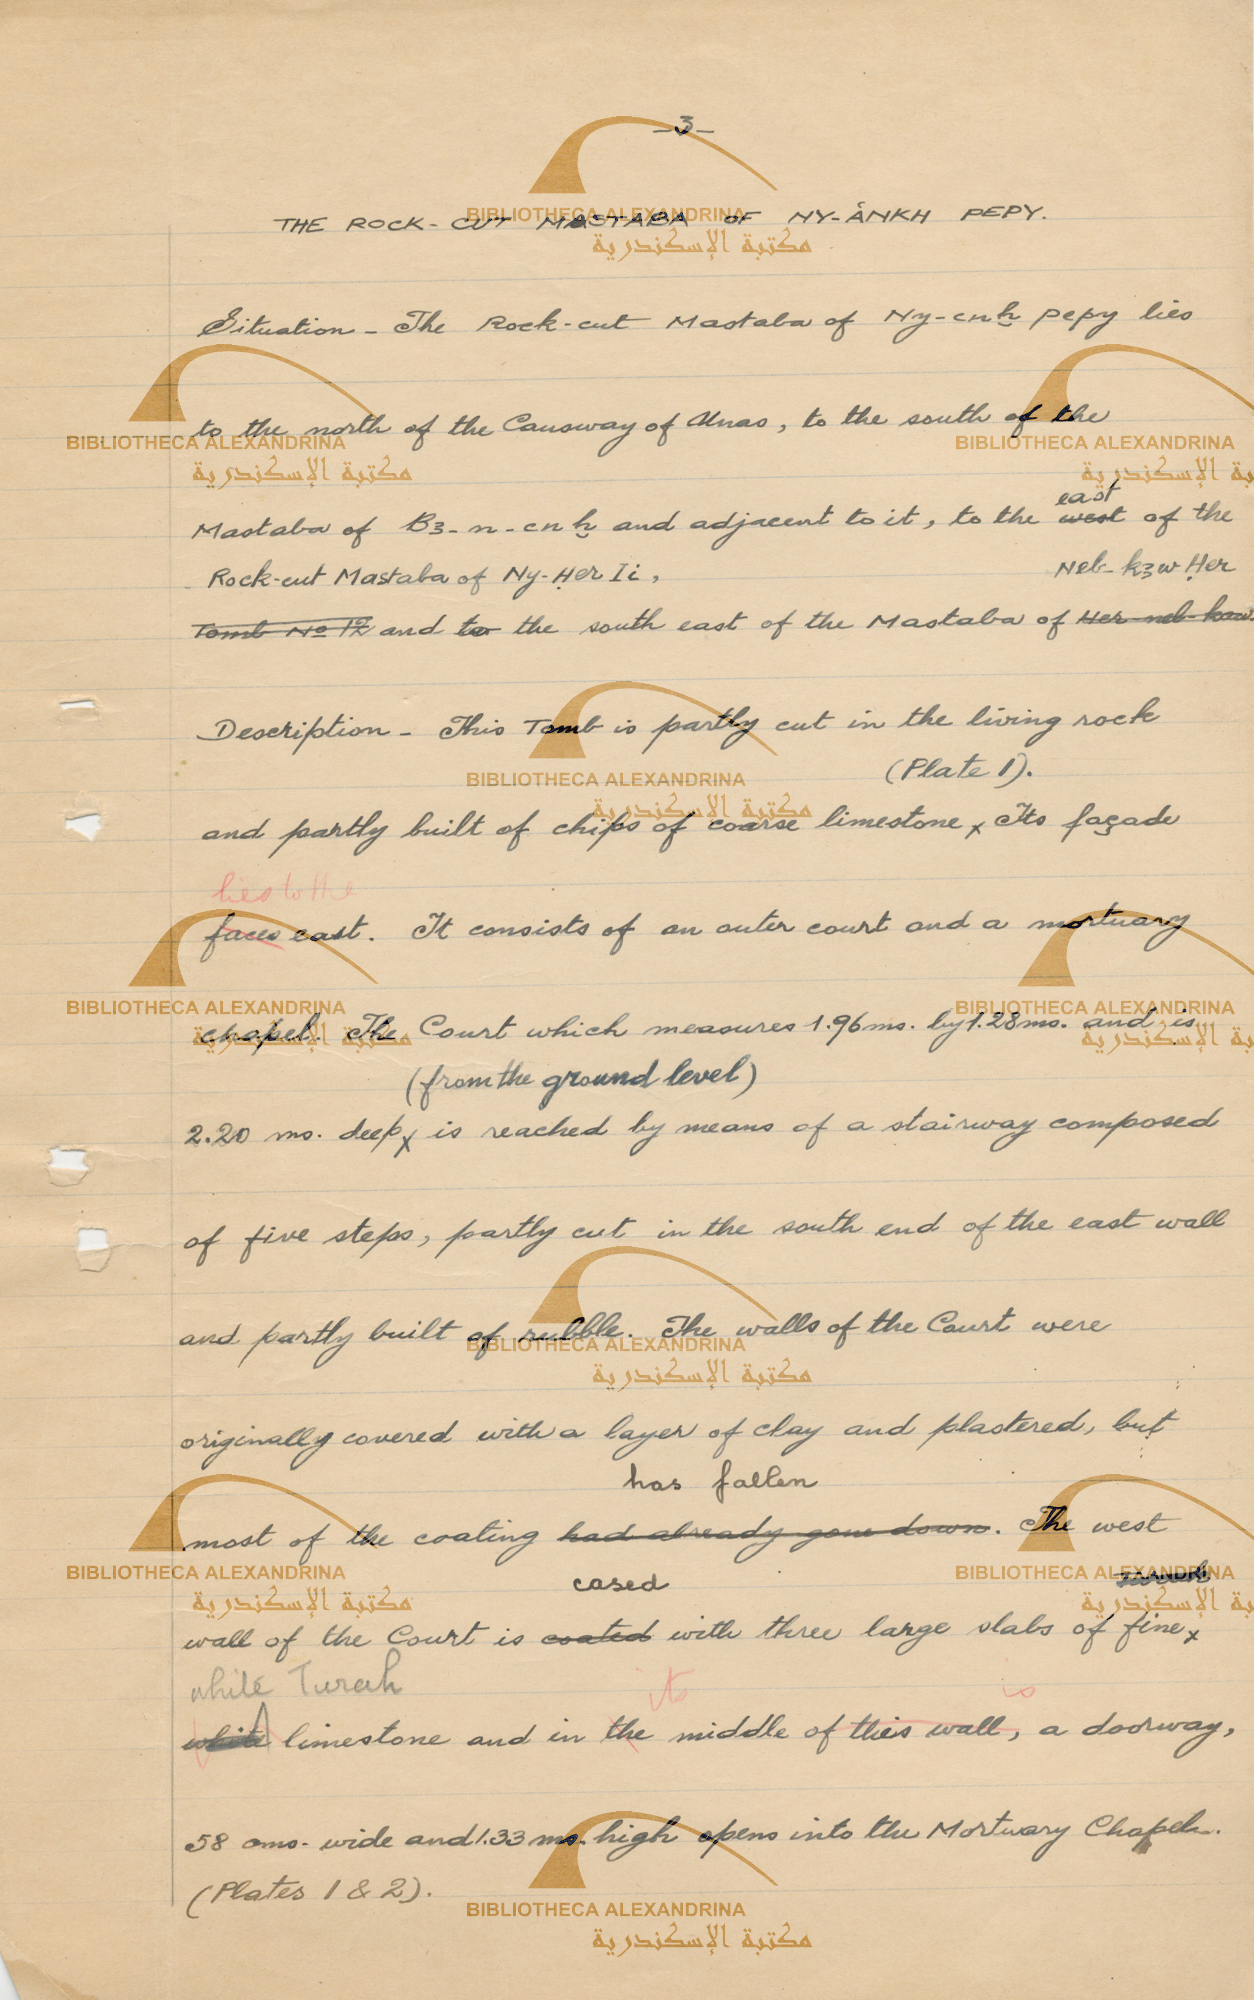 -3-
THE ROCK-CUT MASTABA OF NY-ÁNKH PEPY.
Situation - The Rock-cut Mastaba of Ny-cnḫ pepy lies
to the north of the Causway of Unas, to the south of the
east
Mastaba of B3-n-cnḫ and adjacent to it, to the west of the
Rock-cut Mastaba of Ny-Ḥer Ii, Neb-k3w Ḥer
Tomb No 12 and to the south east of the Mastaba of Her-neb-kaw.
Description - This Tomb is partly cut in the living rock
(Plate 1).
and partly built of chips of coarse limestone x Its façade
lies to the
faces east. It consists of an outer court and a mortuary
chapel. The Court which measures 1.96 ms. by 1.28 ms. and is
(from the ground level)
2.20 ms. deep x is reached by means of a stairway composed
of five steps, partly cut in the south end of the east wall
and partly built of rubble. The walls of the Court were
originally covered with a layer of clay and plastered, but
has fallen
most of the coating had already gone down. The west
cased Turah
wall of the Court is coated with three large slabs of fine x
while Turah its is
white limestone and in the middle of this wall, a doorway,
58 cms. wide and 1.33 ms. high opens into the Mortuary Chapel.
(Plates 1 & 2).
BIBLIOTHECA ALEXANDRINA
مكتبة الإسكندرية